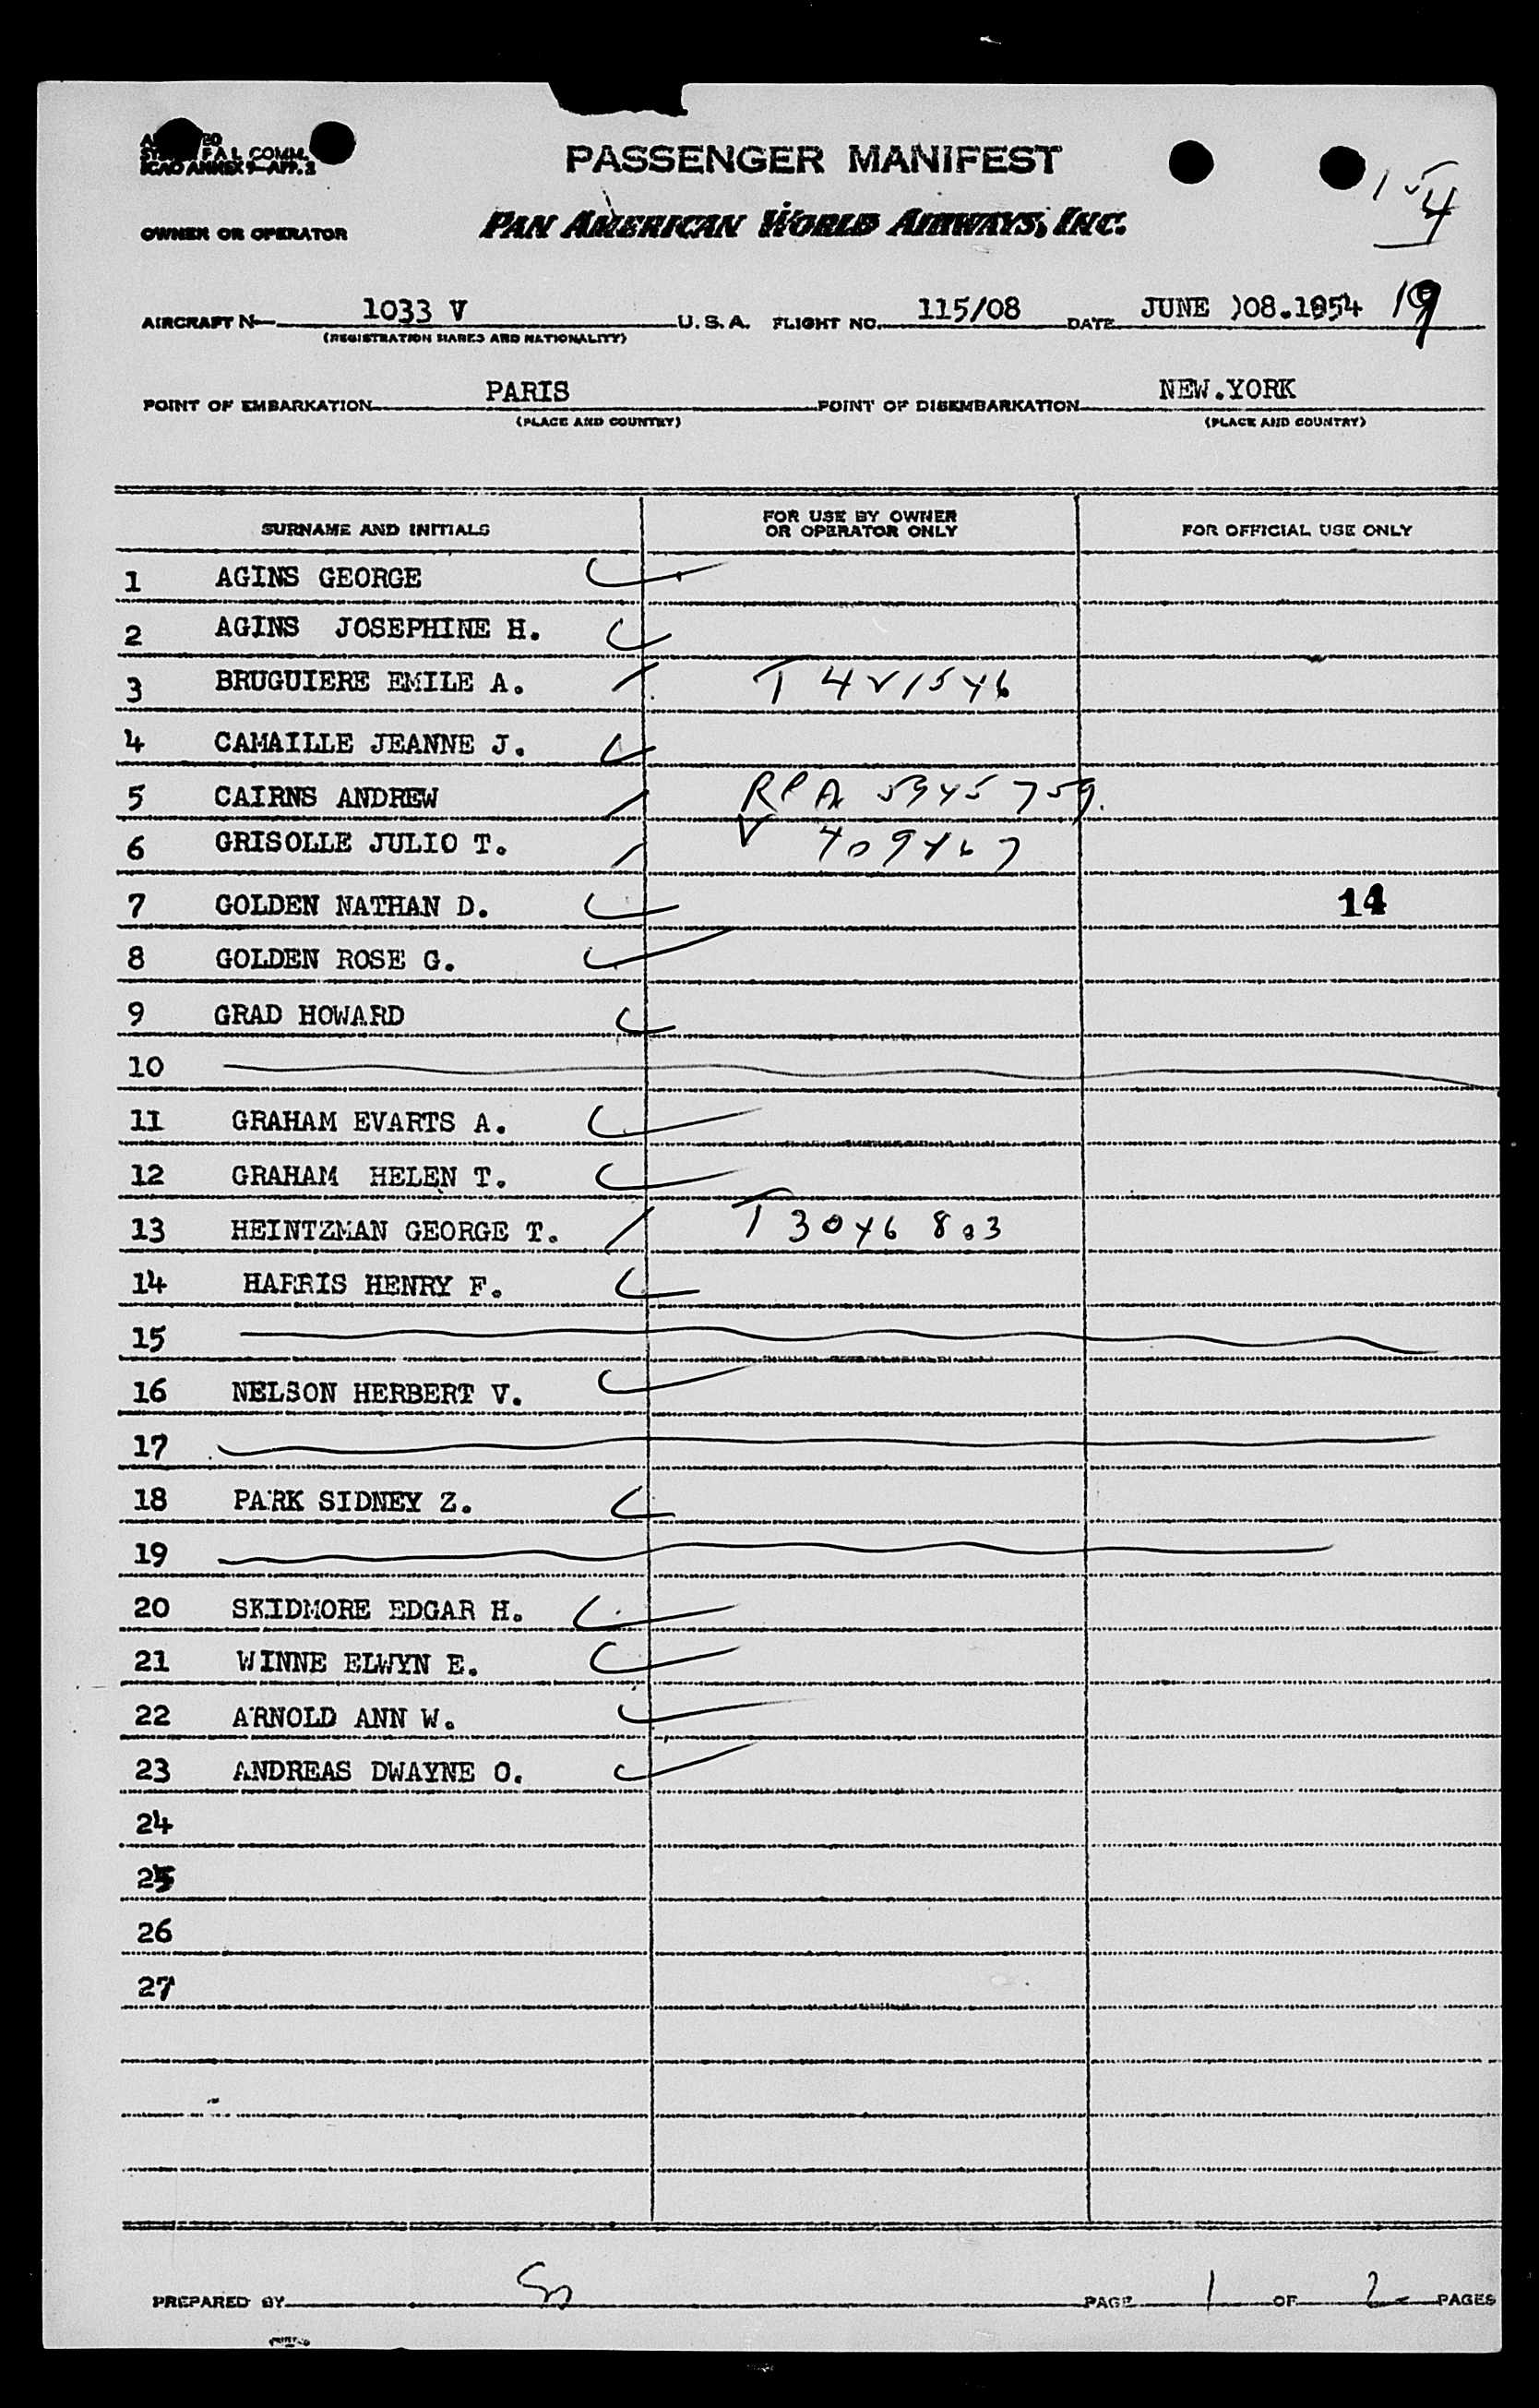 F A L COMM.
ICAO ANNEX 9—APP. 2
PASSENGER MANIFEST
OWNER OR OPERATOR PAN AMERICAN WORLD AIRWAYS, INC.
4
AIRCRAFT N— 1033 V U. S. A. FLIGHT NO. 115/08 DATE JUNE )08.1954 19
(REGISTRATION MARKS AND NATIONALITY)
POINT OF EMBARKATION PARIS POINT OF DISEMBARKATION NEW.YORK
(PLACE AND COUNTRY) (PLACE AND COUNTRY)
SURNAME AND INITIALS FOR USE BY OWNER OR OPERATOR ONLY FOR OFFICIAL USE ONLY
1 AGINS GEORGE
2 AGINS JOSEPHINE H.
3 BRUGUIERE EMILE A. T 421546
4 CAMAILLE JEANNE J.
5 CAIRNS ANDREW RPA 5945759.
6 GRISOLLE JULIO T. V 409467
7 GOLDEN NATHAN D. 14
8 GOLDEN ROSE G.
9 GRAD HOWARD
10
11 GRAHAM EVARTS A.
12 GRAHAM HELEN T.
13 HEINTZMAN GEORGE T. T 3046 803
14 HARRIS HENRY F.
15
16 NELSON HERBERT V.
17
18 PARK SIDNEY Z.
19
20 SKIDMORE EDGAR H.
21 WINNE ELWYN E.
22 ARNOLD ANN W.
23 ANDREAS DWAYNE O.
24
25
26
27
PREPARED BY PAGE 1 OF 2 PAGES